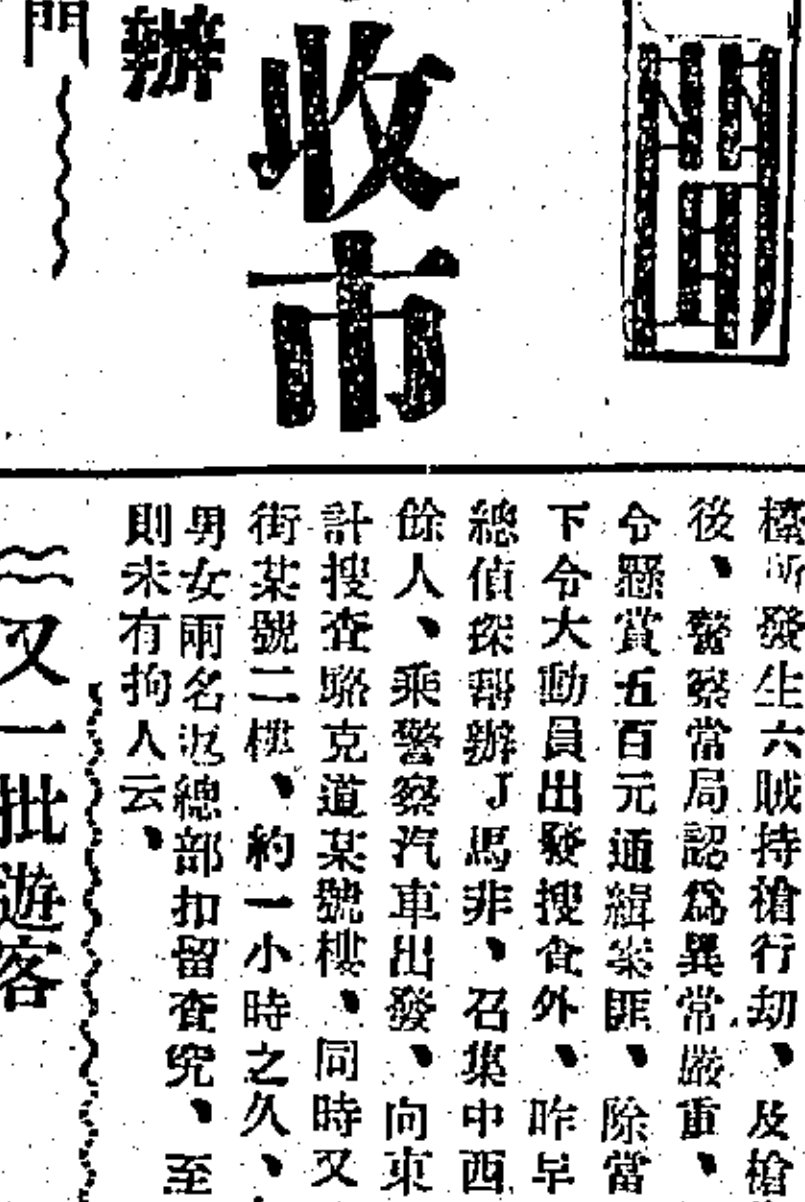 收市
辦
門
樓所發生六賊持槍行劫、及槍
後、警察當局認爲異常嚴重、
令懸賞五百元通緝案匪、除當
下令大動員出發搜查外、昨早
總偵探帮辦J馬非、召集中西
餘人、乘警察汽車出發、向東
計搜查駱克道某號樓、同時又
街某號二樓、約一小時之久、
男女兩名返總部扣留査究、至
則未有拘人云、
又一批遊客